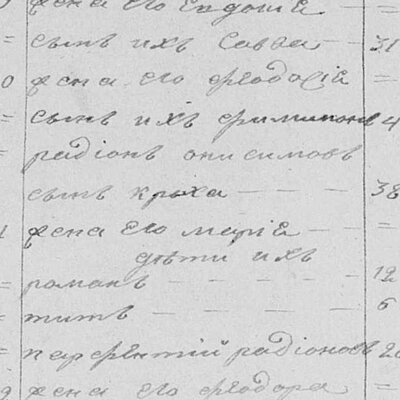 жена его Евдокиѣ
= сынъ ихъ Савва — 31
0 жена его Феодосіѣ —
= сынъ ихъ Филимонъ 4
= радіонъ онисимовъ
сынъ — — — 38
1 жена его маріѣ —
дѣти ихъ
= романъ — — — — 12
= титъ — — — — 6
= парфентій радіоновъ 20
9 жена его феодора —